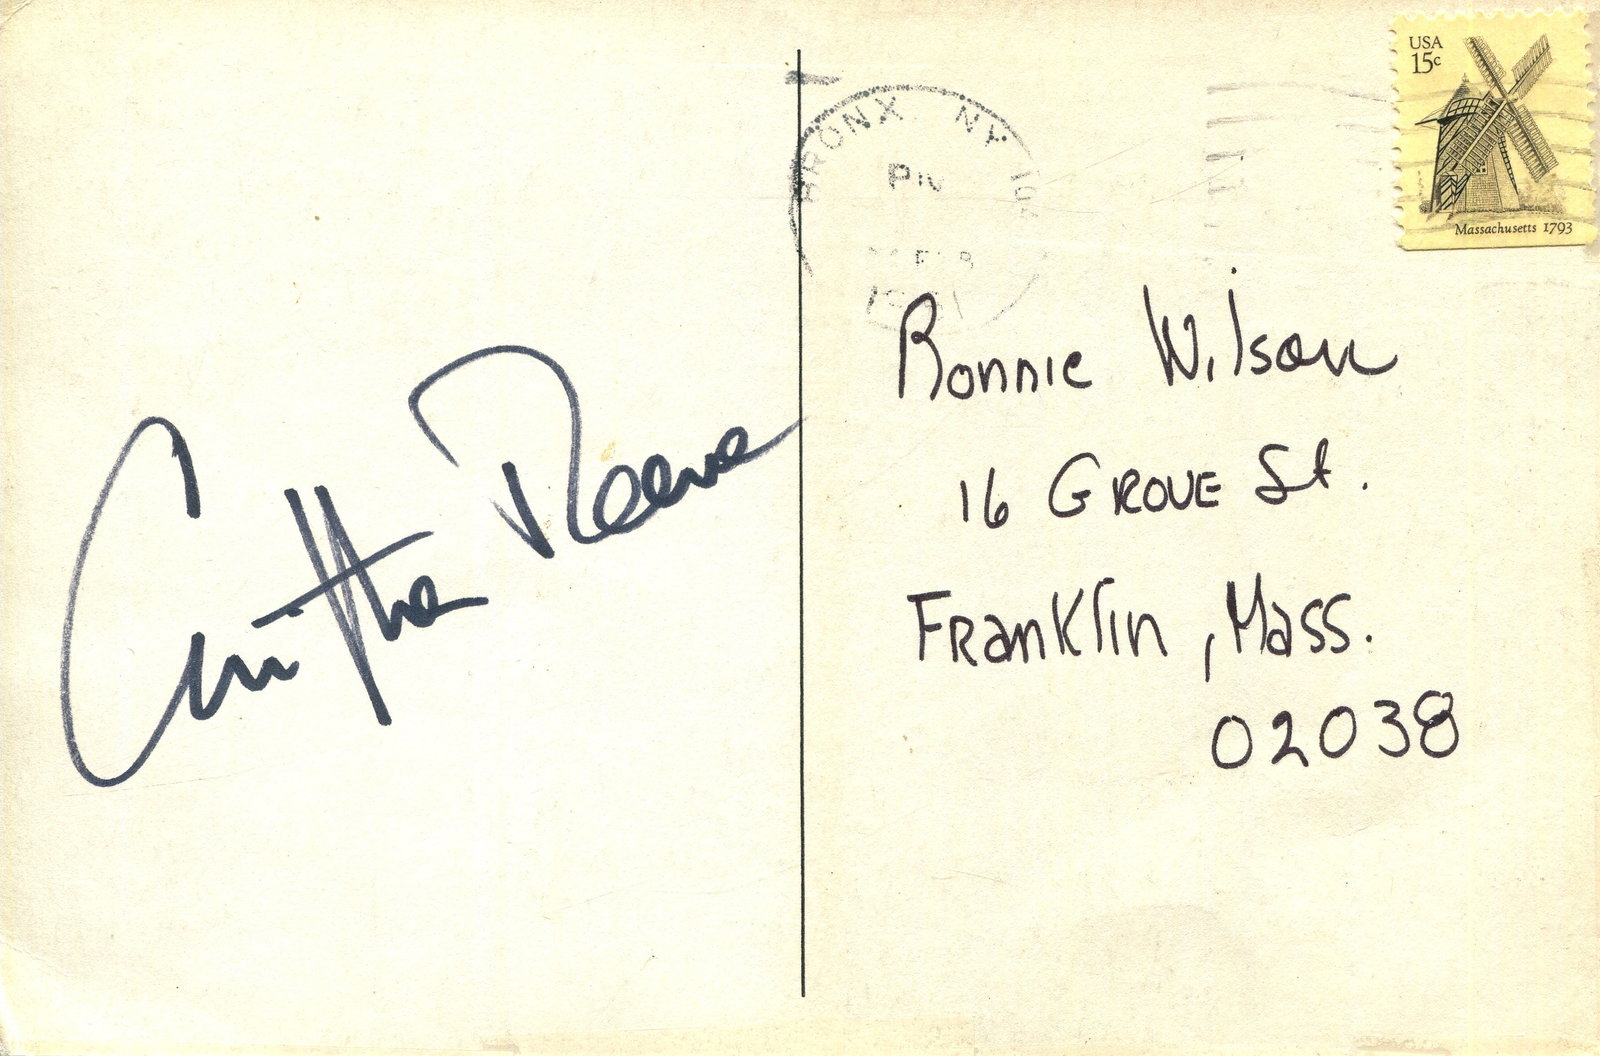 Cynthia Reeve
BRONX NY 104
PM
FEB
1981
USA
15c
Massachusetts 1793
Ronnie Wilson
16 GROVE St.
Franklin, Mass.
02038